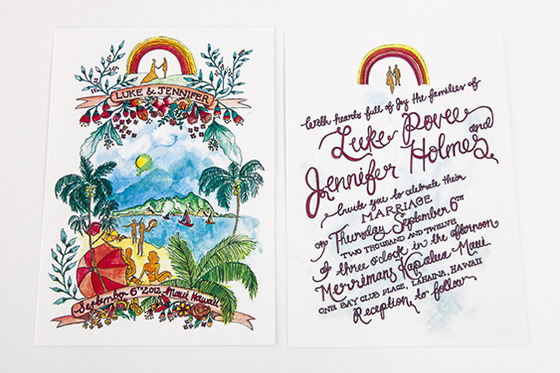 LUKE & JENNIFER
September 6th 2012 Maui Hawaii
With hearts full of Joy the families of
Luke Rovee and
Jennifer Holmes
Invite you to celebrate their
MARRIAGE
on Thursday September 6TH
TWO THOUSAND AND TWELVE
at three o'clock in the afternoon
Merrimans Kapalua Maui
ONE BAY CLUB PLACE, LAHAINA, HAWAII
Reception to follow